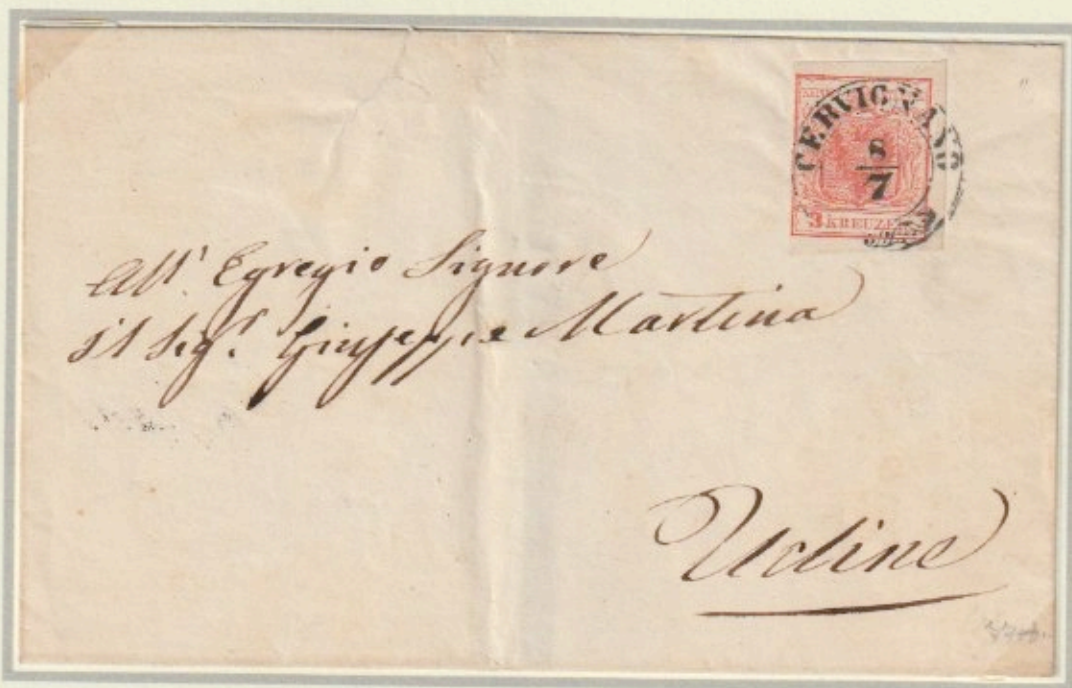 CERVIGNANO
8
7
3 KREUZE
All' Egregio Signore
il Sigr. Giuseppe Martina
Udine